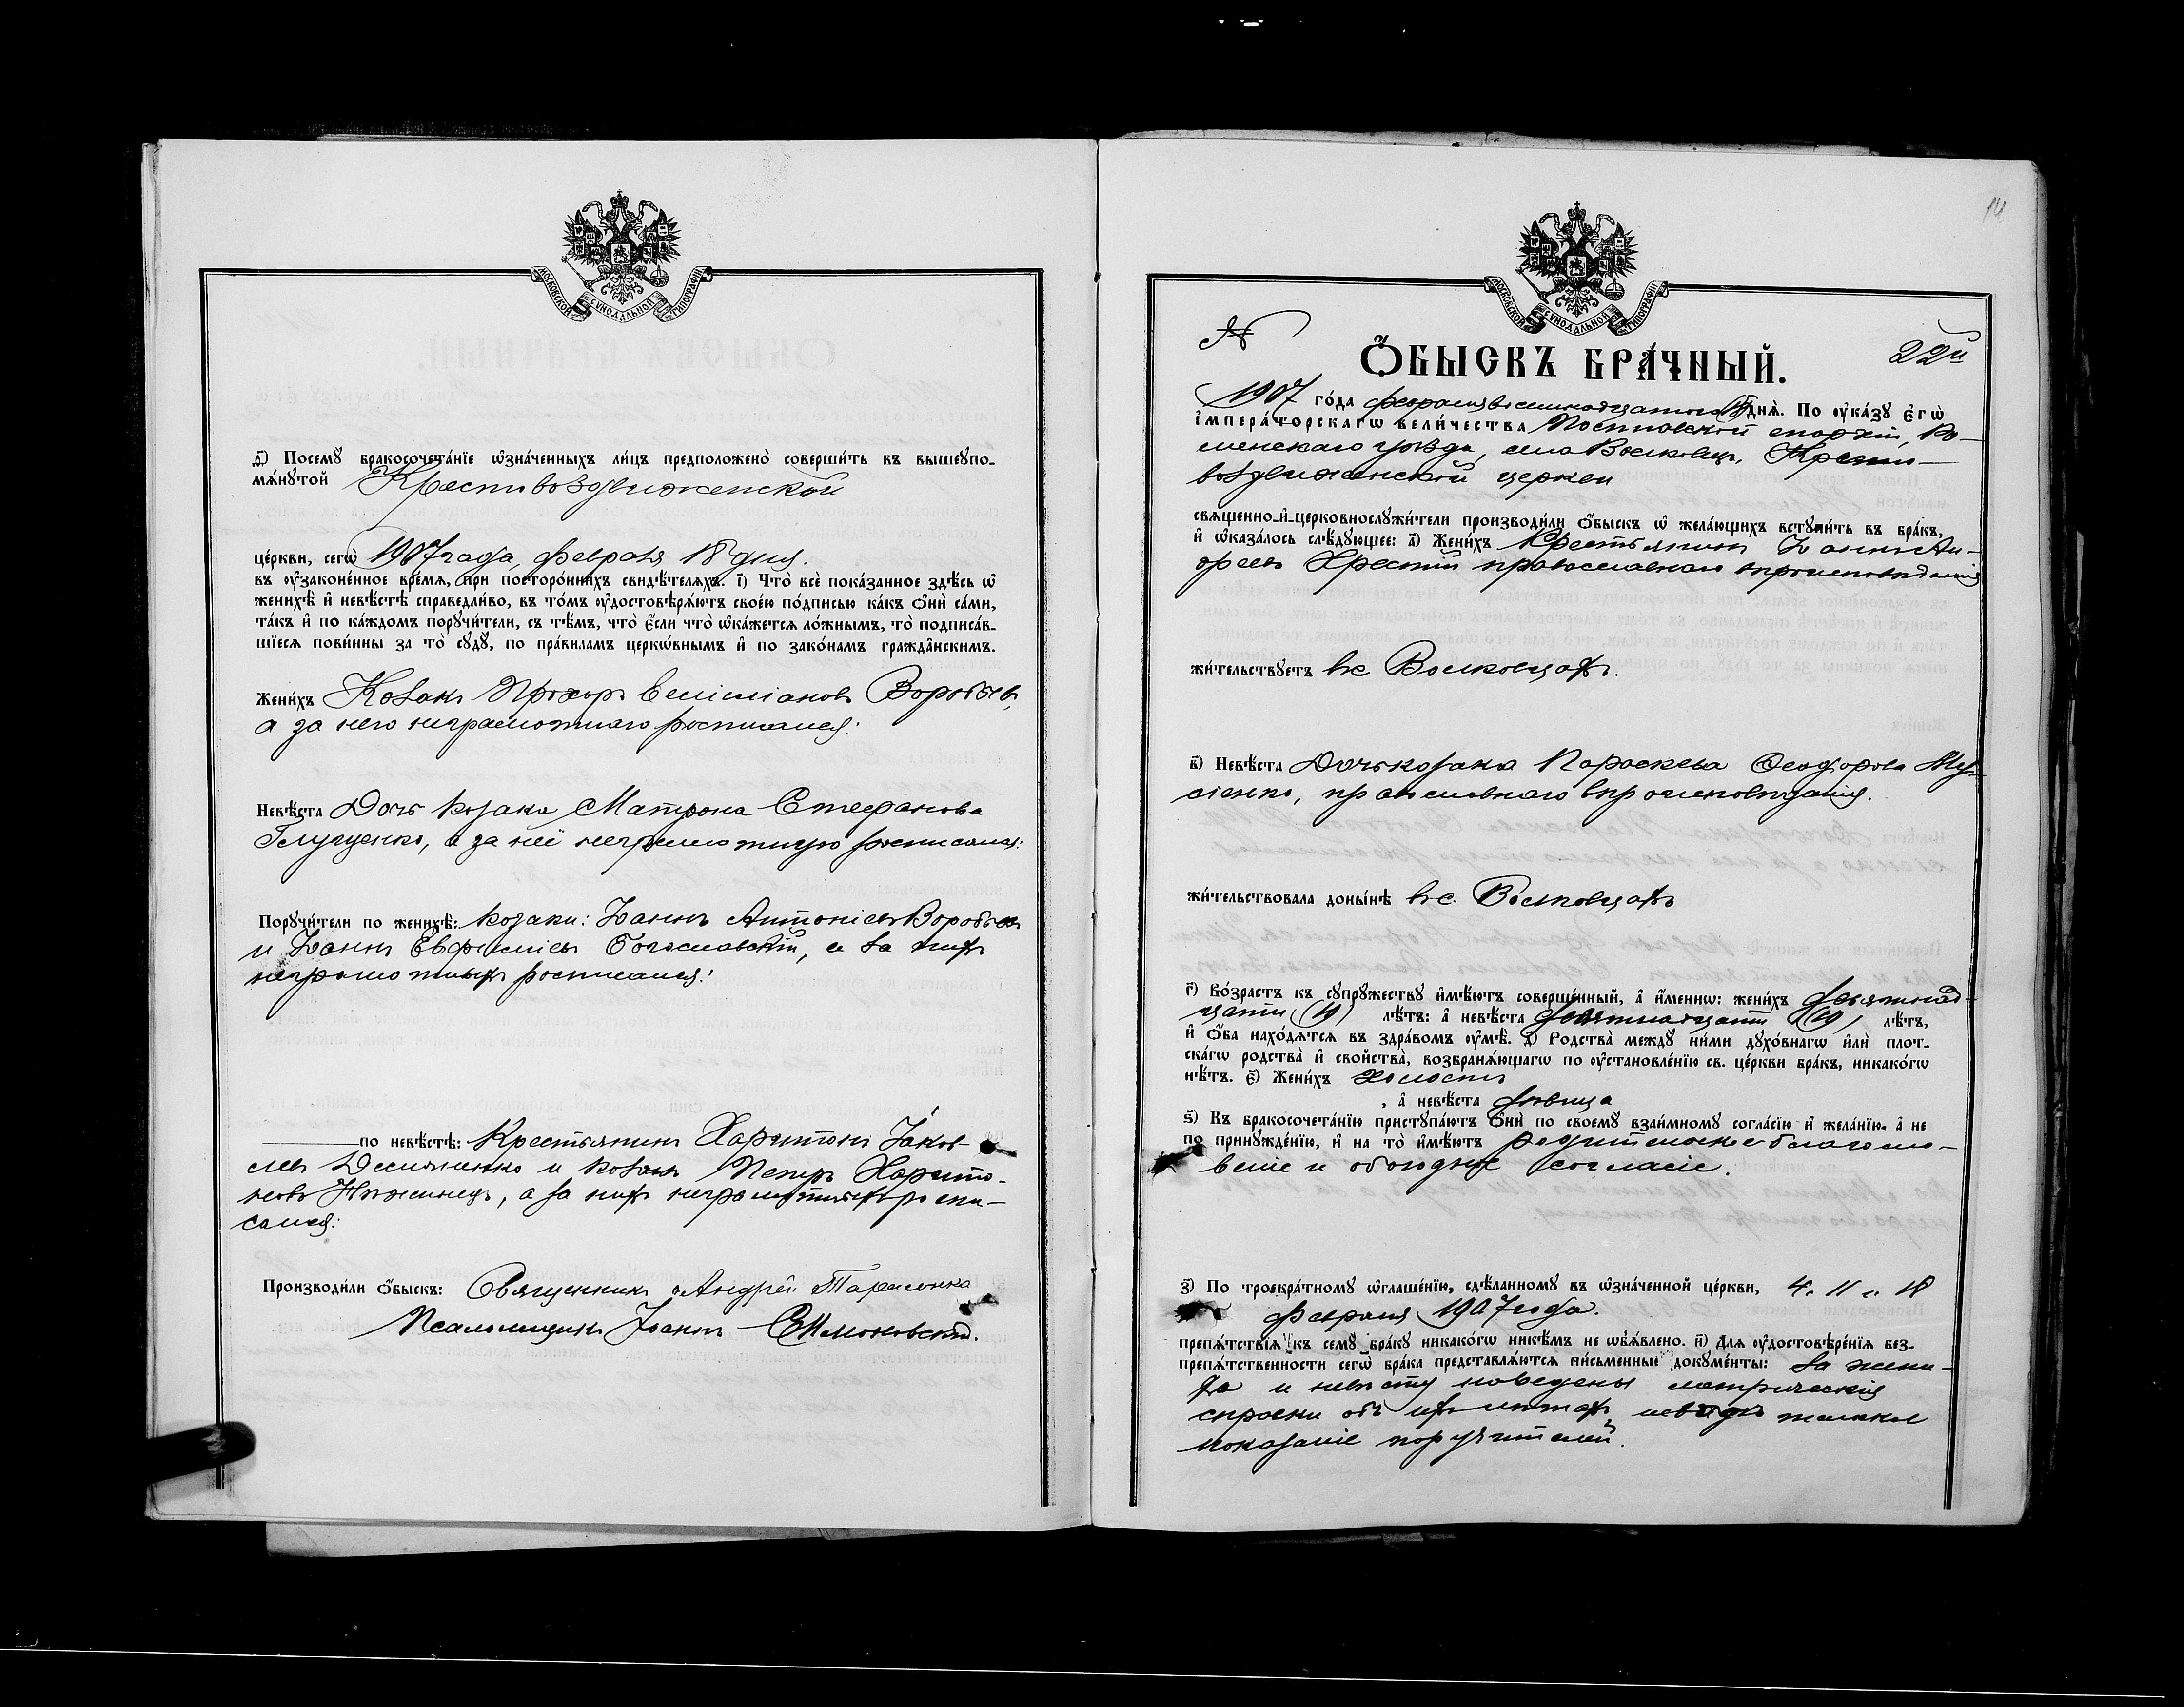 МОСКОВСКОЙ СѴНОДАЛЬНОЙ ТИПОГРАФІИ
д҃) Посемꙋ бракосочета́нїе ѡ҆зна́ченныхъ ли́цъ предположено̀ соверши́ть въ вышеꙋпо-
мѧ́нꙋтой Крестовоздвиженской
це́ркви, сегѡ̀ 1907 года, февраля 18 дня.
въ ᲂу҆законе́нное вре́мѧ, при посторо́ннихъ свидѣ́телѧхъ. і҃) Что̀ всѐ пока́занное здѣ́сь ѡ҆
женихѣ̀ и҆ невѣ́стѣ справедли́во, въ то́мъ ᲂу҆достовѣрѧ́ютъ свое́ю по́дписью ка́къ ѻ҆нѝ са́ми,
та́къ и҆ по ка́ждомъ порꙋчи́тели, съ тѣ́мъ, что̀ є҆́сли что̀ ѡ҆ка́жетсѧ ло́жнымъ, то̀ подписа́в-
шїесѧ пови́нны за то̀ сꙋдꙋ̀, по пра́виламъ церко́внымъ и҆ по зако́намъ гражда́нскимъ.
Жени́хъ Козакъ Прохоръ Емиліановъ Воробьевъ,
а за него неграмотнаго росписался:
Невѣ́ста Дочь козака Матрона Стефанова
Глущенко, а за неё неграмотную росписался:
Порꙋчи́тели по женихѣ̀: козаки: Іоаннъ Антоніевъ Воробьевъ
и Іоаннъ Евфиміевъ Богославскій, а за нихъ
неграмотныхъ росписался:
по невѣ́стѣ: Крестьянинъ Харитонъ Іаков-
левъ и козакъ Петръ Харито-
новъ Нѣжинецъ, а за нихъ неграмотныхъ роспи-
сался:
Производи́ли ѻ҆́быскъ: Священникъ Андрей
Псаломщикъ Іоаннъ
МОСКОВСКОЙ СѴНОДАЛЬНОЙ ТИПОГРАФІИ
№
22й
Ѻ҆́БЫСКЪ БРА́ЧНЫЙ.
1907 го́да февраля восемнадцатаго (18) днѧ̀. По ᲂу҆ка́зꙋ є҆гѡ̀
і҆мпера́торскагѡ вели́чества Полтавской епархіи, Ро-
менскаго уѣзда, села Волковецъ, Кресто-
воздвиженской церкви
свѧще́нно-и҆-церковнослꙋжи́тели производи́ли ѻ҆́быскъ ѡ҆ жела́ющихъ встꙋпи́ть въ бра́къ,
и҆ ѡ҆каза́лось слѣ́дꙋющее: а҃) Жени́хъ Крестьянинъ Іоаннъ Ан-
дреевъ православнаго вѣроисповѣданія
жи́тельствꙋетъ въ с. Волковцахъ.
в҃) Невѣ́ста Дочь козака Параскева Ѳеодорова
православнаго вѣроисповѣданія.
жи́тельствовала доны́нѣ въ с. Волковцахъ
г҃) Во́зрастъ къ сꙋпрꙋ́жествꙋ и҆мѣ́ютъ соверше́нный, а҆ и҆́меннѡ: жени́хъ девятнад-
цати (19) лѣ́тъ: а҆ невѣ́ста девятнадцати (19) лѣ́тъ,
и҆ ѻ҆́ба нахо́дѧтсѧ въ здра́вомъ ᲂу҆мѣ̀. д҃) Родства̀ междꙋ ни́ми дꙋхо́внагѡ и҆лѝ плот-
ска́гѡ родства̀ и҆ сво́йства, возбранѧ́ющагѡ по ᲂу҆становле́нїю св. це́ркви бра́къ, никако́гѡ
нѣ́тъ. є҃) Жени́хъ холостъ
, а҆ невѣ́ста дѣвица
ѕ҃) Къ бракосочета́нїю пристꙋпа́ютъ ѻ҆нѝ по своемꙋ̀ взаи́мномꙋ согла́сїю и҆ жела́нїю, а҆ не
по принꙋжде́нїю, и҆ на то̀ и҆мѣ́ютъ родительское благосло-
веніе и обоюдное согласіе.
з҃) По троекра́тномꙋ ѡ҆глаше́нїю, сдѣ́ланномꙋ въ ѡ҆зна́ченной це́ркви, 4, 11 и 18
февраля 1907 года.
препѧ́тствїѧ къ семꙋ̀ бра́кꙋ никако́гѡ никѣ́мъ не ѡ҆б̾ѧ́влено. и҃) Длѧ ᲂу҆достовѣре́нїѧ без-
препѧ́тственности сегѡ̀ бра́ка представлѧ́ютсѧ пи́сьменные докꙋме́нты: За жени-
ха и невѣсту наведены метрическія
справки объ ихъ лѣтахъ
показаніе поручителей.